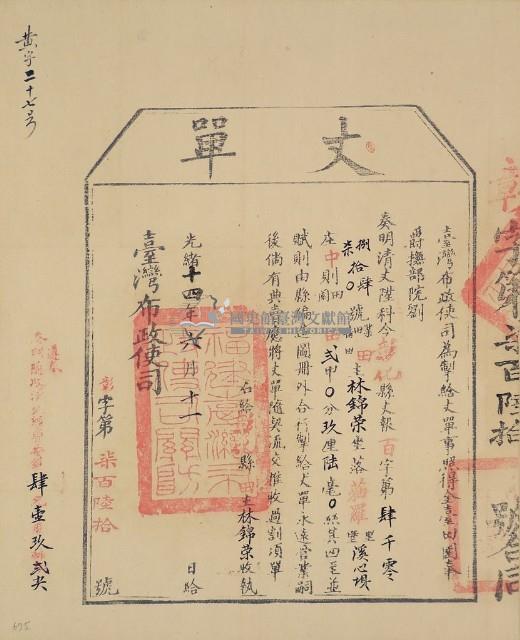 黄字二十七号
丈單
臺灣布政使司為掣給丈單事照得全臺田園奉
爵撫部院劉
奏明清丈陞科今彰化縣丈報百字第肆千零
捌拾肆號業
柒拾〇
田主林錦榮坐落猫羅里堡溪心埧
庄中則田
貳甲〇分玖厘陸毫〇絲其四至並
賦則由縣編造圖冊外合行掣給丈單永遠管業嗣
後倘有典賣應將丈單隨契流交推收過割須單
右給縣主林錦榮收執
光緒十四年六月十一日給
臺灣布政使司
彰字第柒百陸拾號
國史館臺灣文獻館
肆 壹 玖 貳
字第柒百陸拾
675